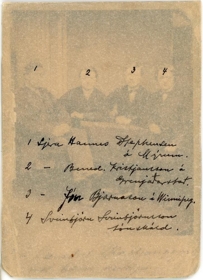 1 2 3 4
1 Sjera Hannes Stephensen
á Mýrum.
2 - Bened. Kristjánsson á
Grenjaðarstað.
3 - Jón Bjarnason á Winnipeg.
4 Sveinbjörn Sveinbjörnsson
tónskáld.